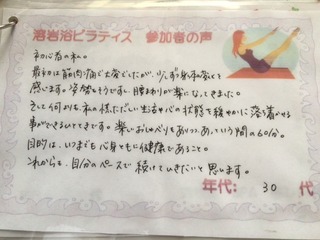 溶岩浴ピラティス 参加者の声
初心者の私。
最初は筋肉痛で大変でしたが、少しずつ身体の変化を
感じます。姿勢もそうですし、腰まわりが楽になってきました。
そして何よりも、私の慌ただしい生活や心の状態を緩やかに落ち着かせる
事ができるひとときです。楽しいおしゃべりもありつつ、あっという間の60分。
目的は、いつまでも心身ともに健康であること。
これからも、自分のペースで続けていきたいと思います。
年代: 30 代